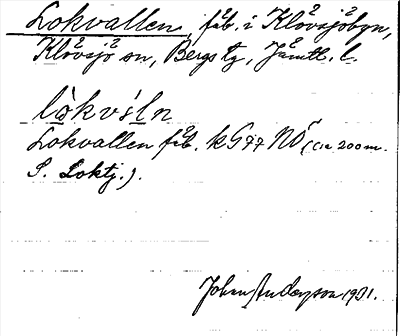 Lokvallen, fäb. i Klövsjöbyn,
Klövsjö sn, Bergs tg, Jämtl. l.
lòkvɩ́ln
Lokvallen fäb. kG77 NÖ (ca 200 m.
S. Loktj.).
Johan Anderson 1931.